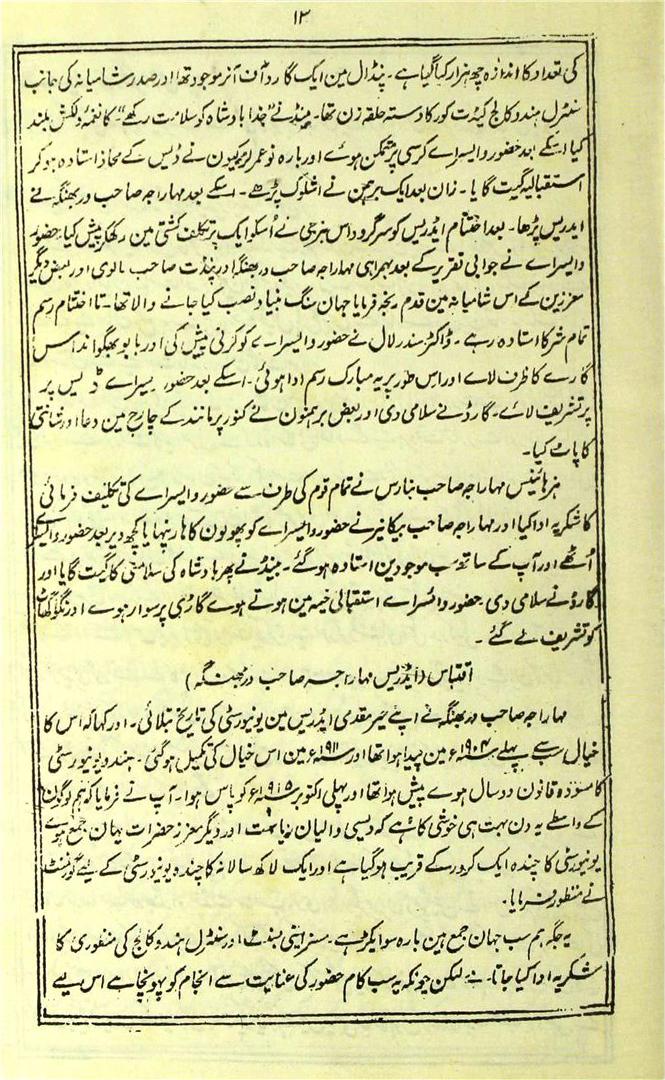 ۱۳
کی تعداد کا اندازہ چھ ہزار کیا گیا ہے۔ پنڈال مین ایک گارد آف آنر موجود تھا اور صدر شامیانہ کی جانب
سنٹرل ہندو کالج کیڈٹ کور کا دستہ حلقہ زن تھا۔ بینڈ نے "خدا بادشاہ کو سلامت رکھے" کا نغمۂ دلکش بلند
کیا اسکے بعد حضور وایسراے کرسی پر متمکن ہوے اور بارہ نو عمر لڑکیون نے ڈیس کے محاذ استادہ ہو کر
استقبالیہ گیت گایا۔ زان بعد ایک برہمن نے اشلوک پڑھے۔ اسکے بعد مہاراجہ صاحب دربھنگہ نے
ایڈریس پڑھا۔ بعد اختتام ایڈریس کو سر گرو داس بنرجی نے اُسکو ایک پر تکلف کشتی مین رکھکر پیش کیا حضور
وایسراے نے جوابی تقریر کے بعد بہمراہی مہاراجہ صاحب دربھنگہ اور پنڈت صاحب مالوی اور بعض دیگر
معززین کے اس شامیانہ مین قدم رنجہ فرمایا جہان سنگ بنیاد نصب کیا جانے والا تھا۔ تا اختتام رسم
تمام شرکا استادہ رہے۔ ڈاکٹر سندر لال نے حضور وایسراے کو کرنی پیش کی اور بابو بھگوانداس
گارے کا ظرف لاے اور اس طور پر یہ مبارک رسم ادا ہوئی۔ اسکے بعد حضور یسراے ڈیس پر
پر تشریف لاے۔ گارڈ نے سلامی دی اور بعض برہمنون نے کنور پر مانند کے چارج مین دعا اور شانتی
کا پاٹ کیا۔
ہزہائینس مہاراجہ صاحب بنارس نے تمام قوم کی طرف سے حضور وایسراے کی تکلیف فرمائی
کا شکریہ ادا کیا اور مہاراجہ صاحب بیکانیر نے حضور وایسراے کو پھولون کا ہار پنہایا کچھ دیر بعد حضور وایسراے
اُٹھے اور آپ کے ساتھ سب موجودین استادہ ہو گئے۔ بینڈ نے پھر بادشاہ کی سلامتی کا گیت گایا اور
گارڈ نے سلامی دی۔ حضور وائسراے استقبالی خیمہ مین ہوتے ہوے گاڑی پر سوار ہوے اور
کو تشریف لے گئے۔
اقتباس (ایڈریس مہاراجہ صاحب دربھنگہ)
مہاراجہ صاحب دربھنگہ نے اپنے خیر مقدمی ایڈریس مین یونیورسٹی کی تاریخ بتلائی۔ اور کہا کہ اس کا
خیال سب سے پہلے ۱۹۰۴ء مین پیدا ہوا تھا اور ۱۹۱۱ء مین اس خیال کی تکمیل ہو گئی۔ ہندو یونیورسٹی
کا مسودہ قانون دو سال ہوے پیش ہوا تھا اور پہلی اکتوبر ۱۹۱۵ء کو پاس ہوا۔ آپ نے فرمایا کہ ہم لوگون
کے واسطے یہ دن بہت ہی خوشی کا ہے کہ دیسی والیان ریاست اور دیگر معزز حضرات یہان جمع ہوے
یونیورسٹی کا چندہ ایک کرور کے قریب ہو گیا ہے اور ایک لاکھ سالانہ کا چندہ یونیورسٹی کے لیے گورنمنٹ
نے منظور فرمایا۔
یہ جگہ ہم سب جہان جمع ہین بارہ سو ایکڑ ہے۔ مسز اینی بسنٹ اور سنٹرل ہندو کالج کی منظوری کا
شکریہ ادا کیا جاتا ہے لیکن چونکہ یہ سب کام حضور کی عنایت سے انجام کو پہونچا ہے اس لیے